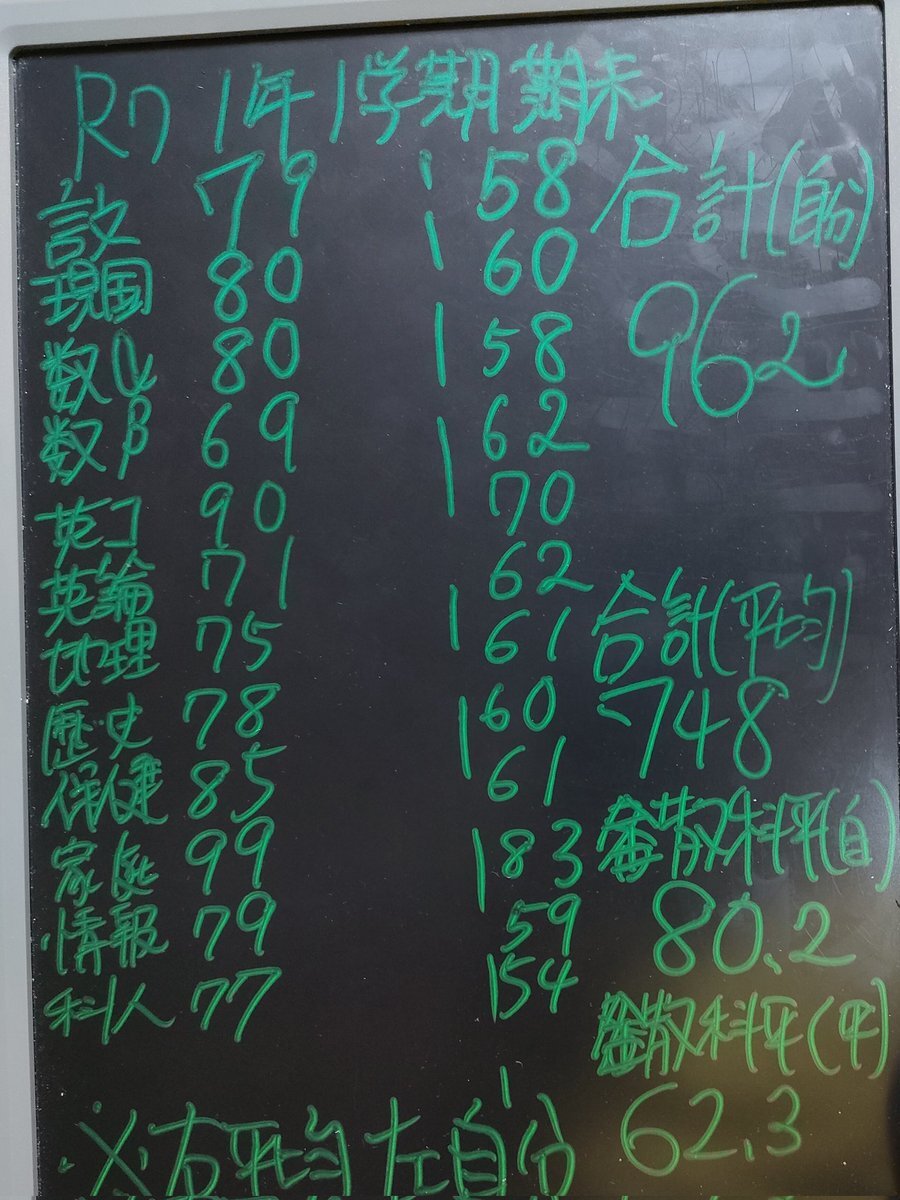 R7 1年1学期期末
言文 79 58
現国 80 60
数α 80 58
数β 69 62
英コ 90 70
英論 71 62
地理 75 61
歴史 78 60
保健 85 61
家庭 99 83
情報 79 59
科人 77 54
合計(自分)
962
合計(平均)
748
教科平(自)
80.2
教科平(平)
62.3
※右平均 左自分